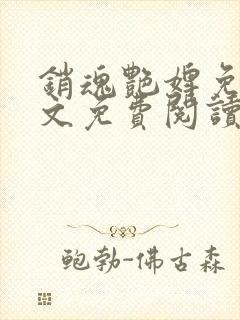 銷魂艷婢免
文免費閱讀
鮑勃-佛古森